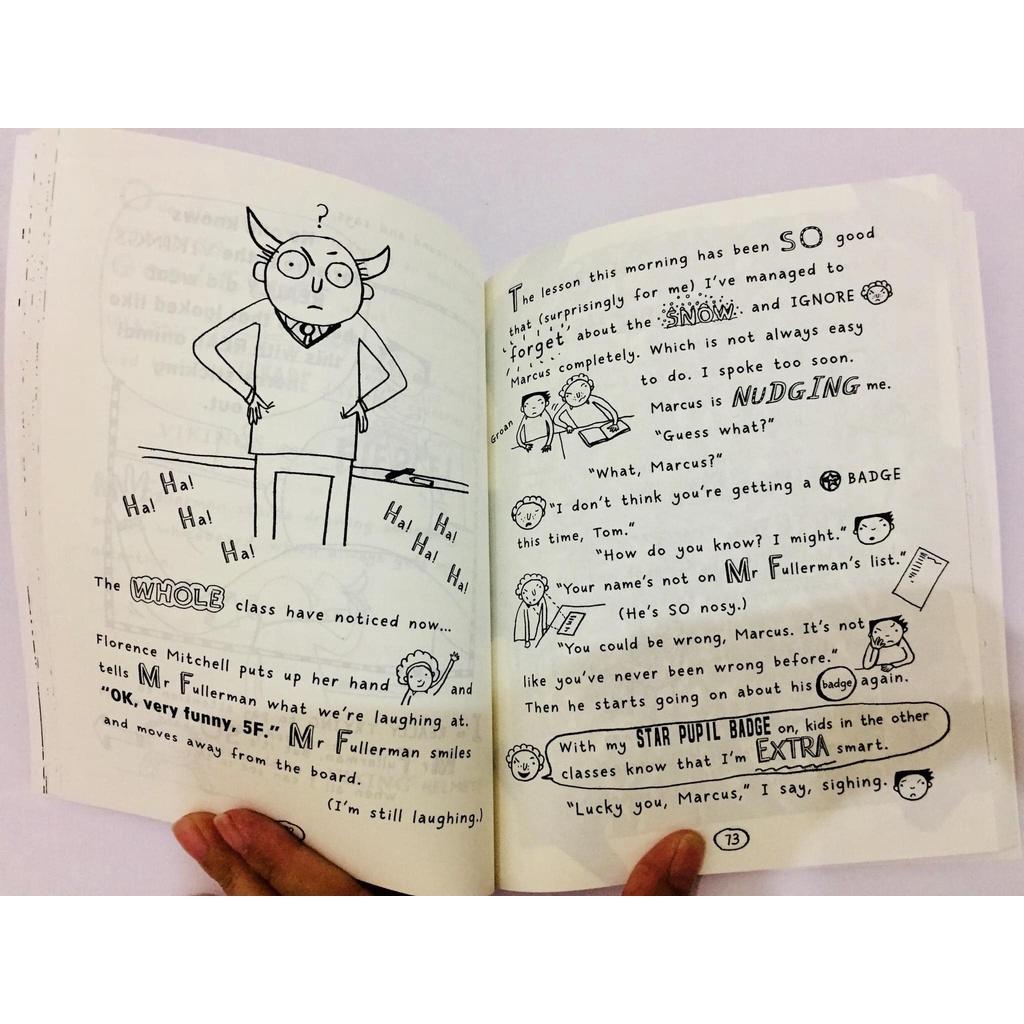 ?
Ha!
Ha!
Ha!
Ha!
Ha!
Ha!
Ha!
Ha!
The WHOLE class have noticed now...
Florence Mitchell puts up her hand and
tells Mr Fullerman what we're laughing at.
"OK, very funny, 5F." Mr Fullerman smiles
and moves away from the board.
(I'm still laughing.)
The lesson this morning has been SO good
that (surprisingly for me) I've managed to
forget about the SNOW and IGNORE
Marcus completely. Which is not always easy
to do. I spoke too soon.
Groan
Marcus is NUDGING me.
"Guess what?"
"What, Marcus?"
"I don't think you're getting a BADGE
this time, Tom."
"How do you know? I might."
"Your name's not on Mr Fullerman's list."
(He's SO nosy.)
"You could be wrong, Marcus. It's not
like you've never been wrong before."
Then he starts going on about his badge again.
With my STAR PUPIL BADGE on, kids in the other
classes know that I'm EXTRA smart.
"Lucky you, Marcus," I say, sighing.
73